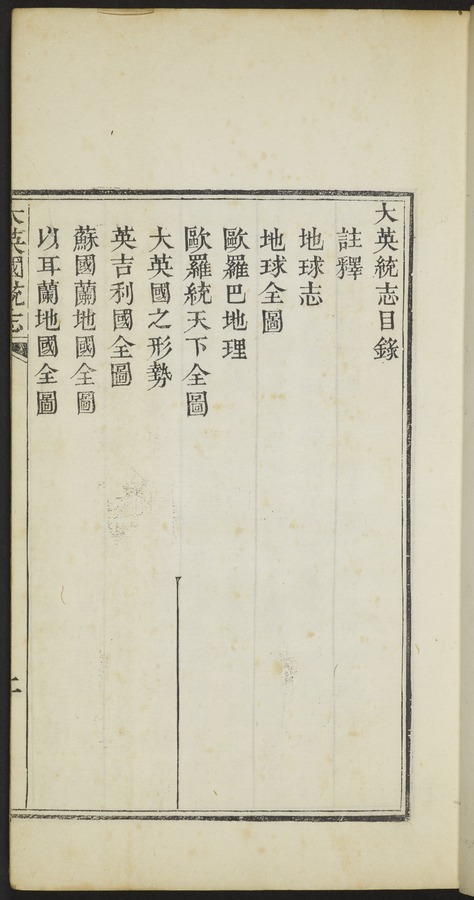 大英統志目錄
註釋
地球志
地球全圖
歐羅巴地理
歐羅統天下全圖
大英國之形勢
英吉利國全圖
蘇國蘭地國全圖
以耳蘭地國全圖
大英國統志